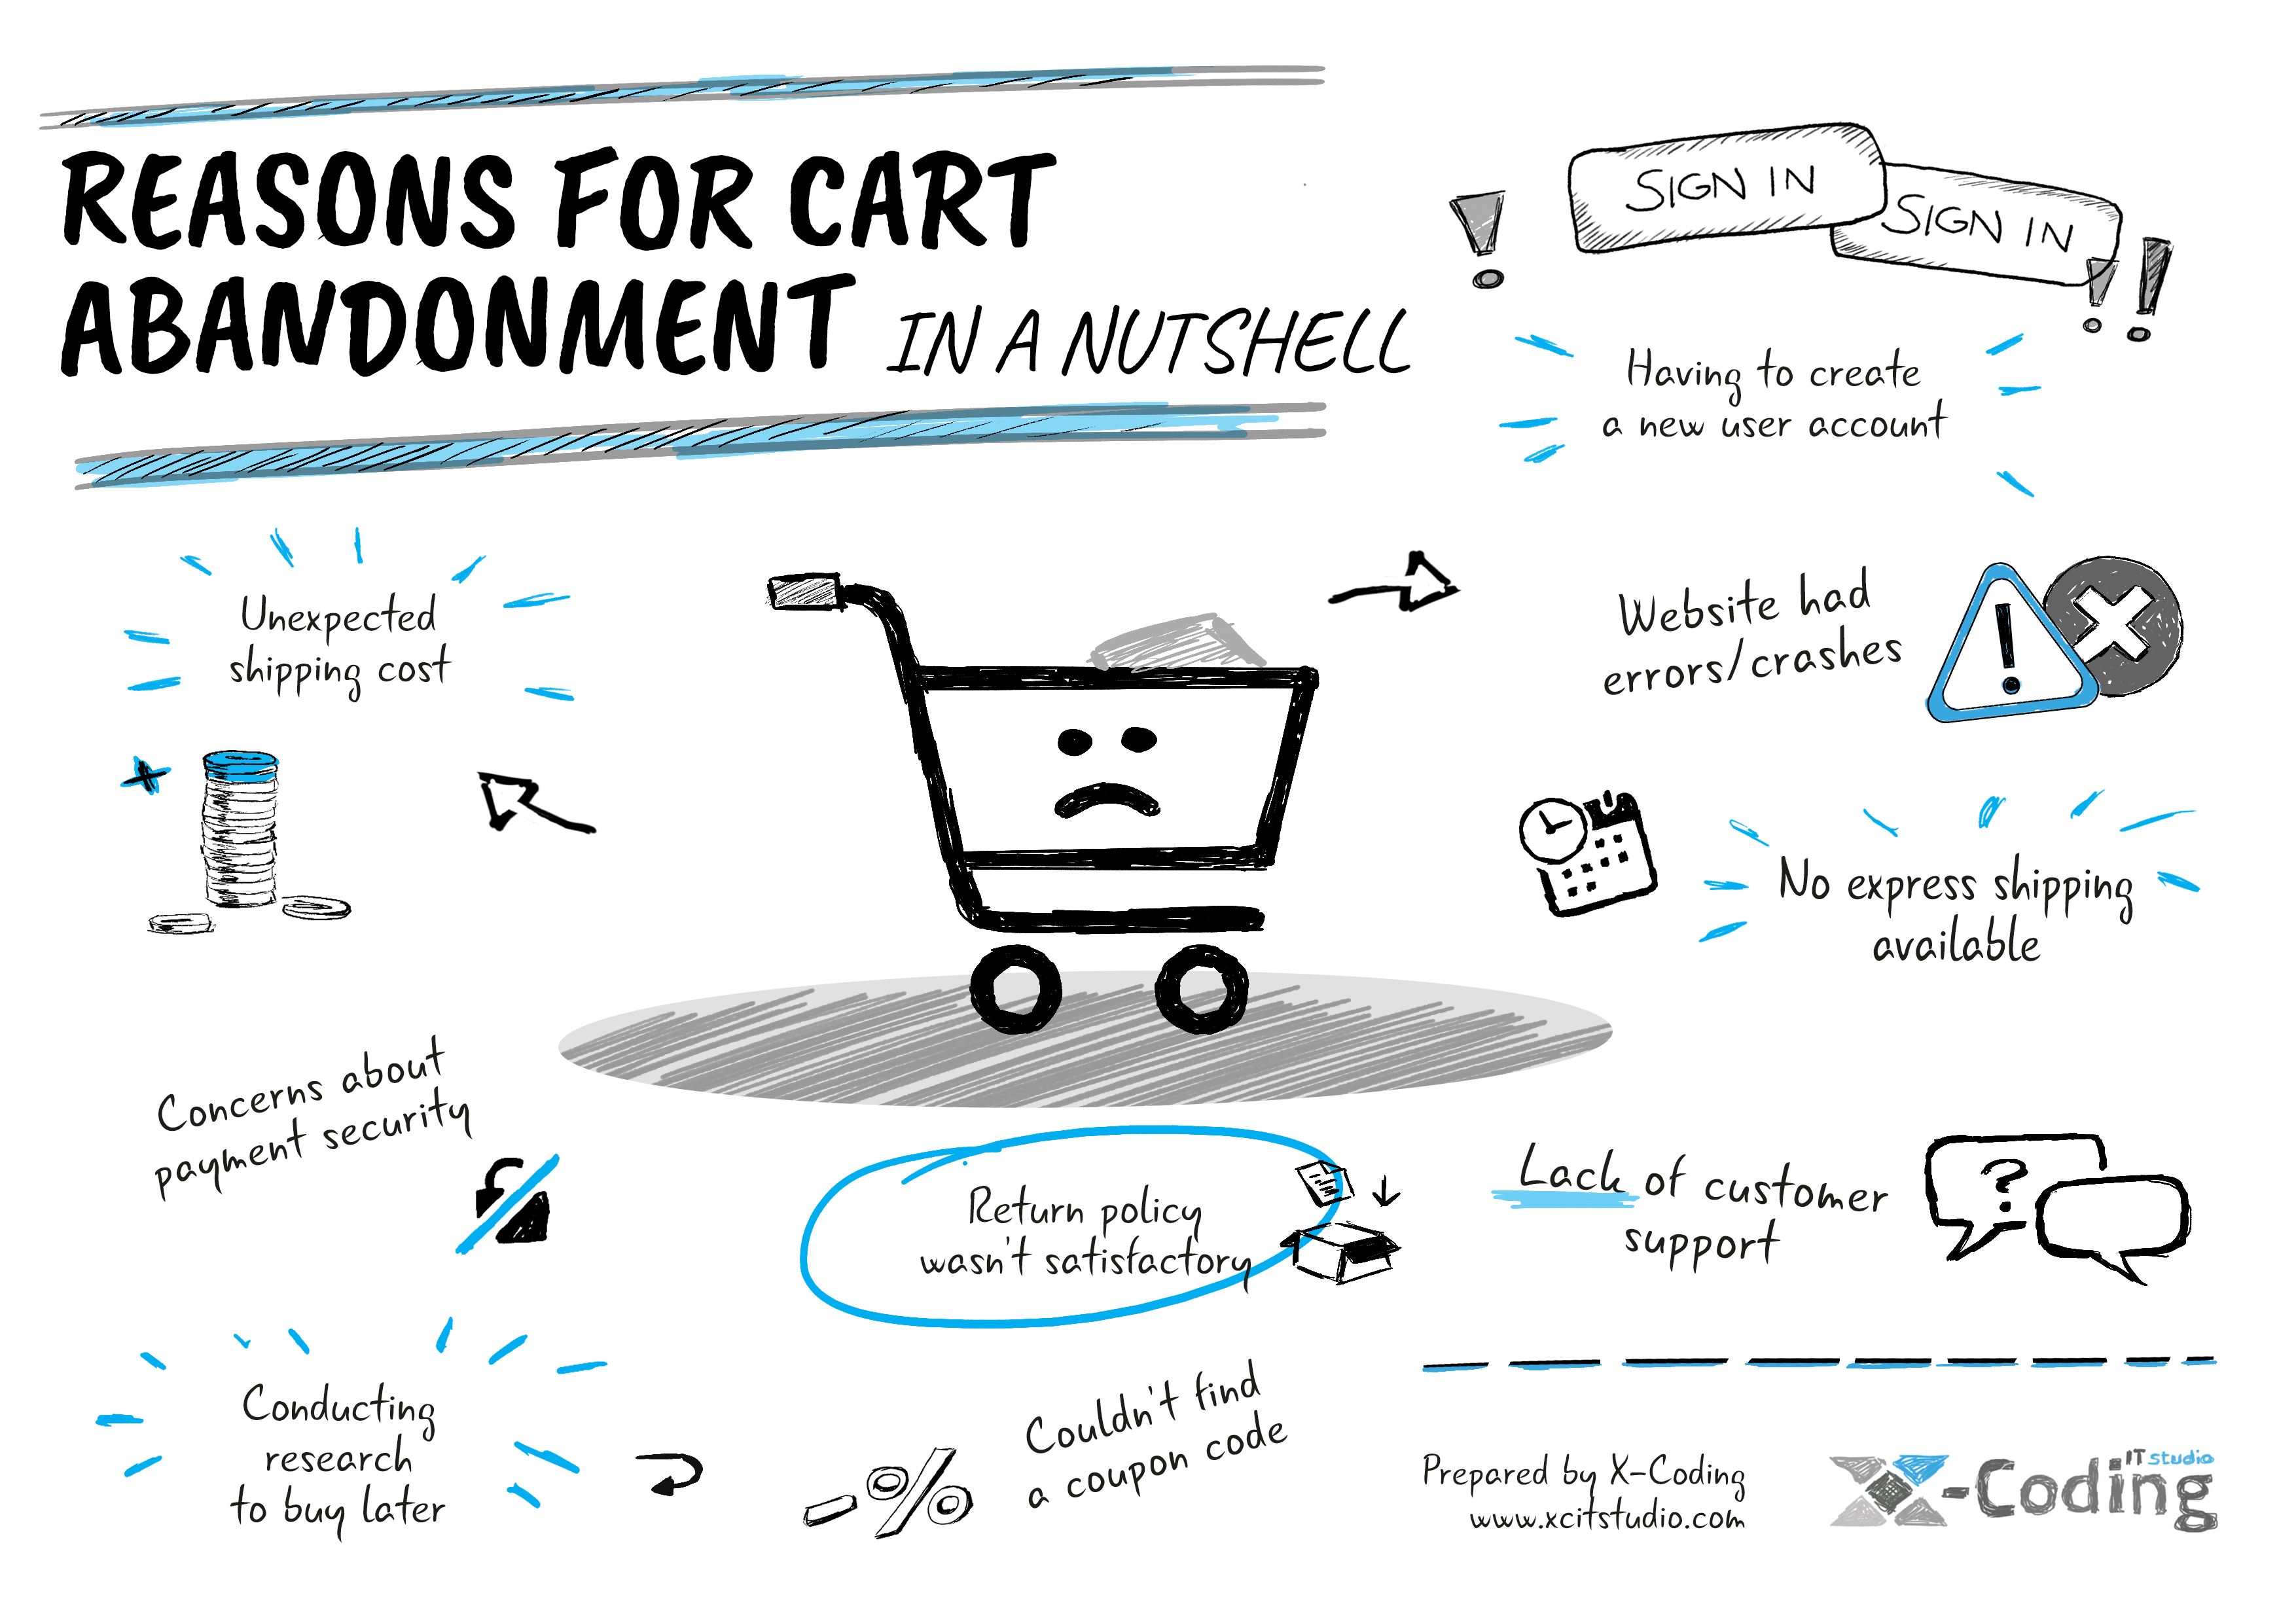 REASONS FOR CART
ABANDONMENT IN A NUTSHELL
SIGN IN
SIGN IN
Having to create
a new user account
Unexpected
shipping cost
Website had
errors/crashes
No express shipping
available
Concerns about
payment security
Return policy
wasn't satisfactory
Lack of customer
support
Conducting
research
to buy later
Couldn't find
a coupon code
Prepared by X-Coding
www.xcitstudio.com
X-Coding
IT studio